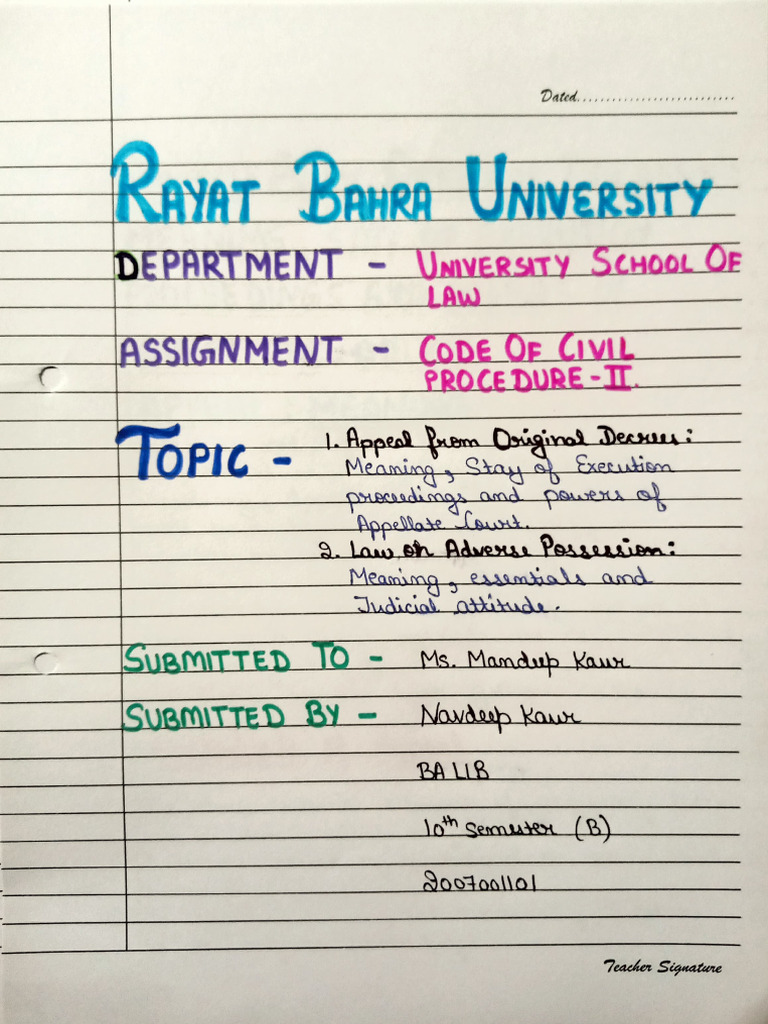 Dated............................
RAYAT BAHRA UNIVERSITY
DEPARTMENT - UNIVERSITY SCHOOL OF
LAW
ASSIGNMENT - CODE OF CIVIL
PROCEDURE-II.
TOPIC - 1. Appeal from Original Decrees:
Meaning, Stay of Execution
proceedings and powers of
Appellate Court.
2. Law on Adverse Possession:
Meaning, essentials and
Judicial attitude.
SUBMITTED TO - Ms. Mandeep Kaur
SUBMITTED BY - Navdeep Kaur
BA LLB
10th Semester (B)
2007001101
Teacher Signature